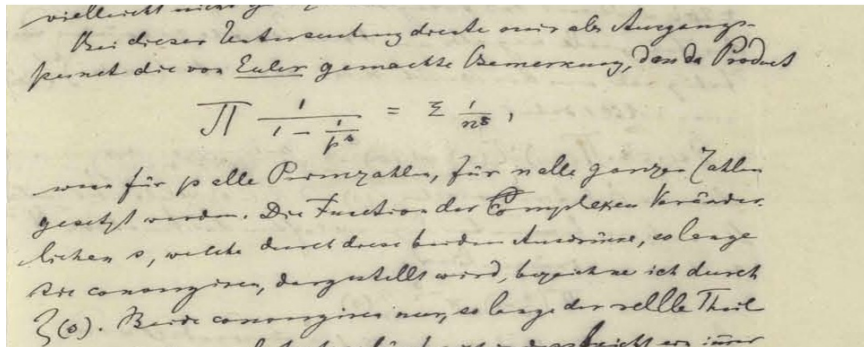 vielleicht nicht
Bei dieser Untersuchung diente mir als Ausgangs-
punct die von Euler gemachte Bemerkung, dass das Product
∏ 1/(1 − 1/p^s) = Σ 1/n^s,
wenn für p alle Primzahlen, für n alle ganzen Zahlen
gesetzt werden. Die Function der Complexen Veränder-
lichen s, welche durch diese beiden Ausdrücke, so lange
sie convergiren, dargestellt wird, bezeichne ich durch
ζ(s). Beide convergiren nur, so lange der reelle Theil